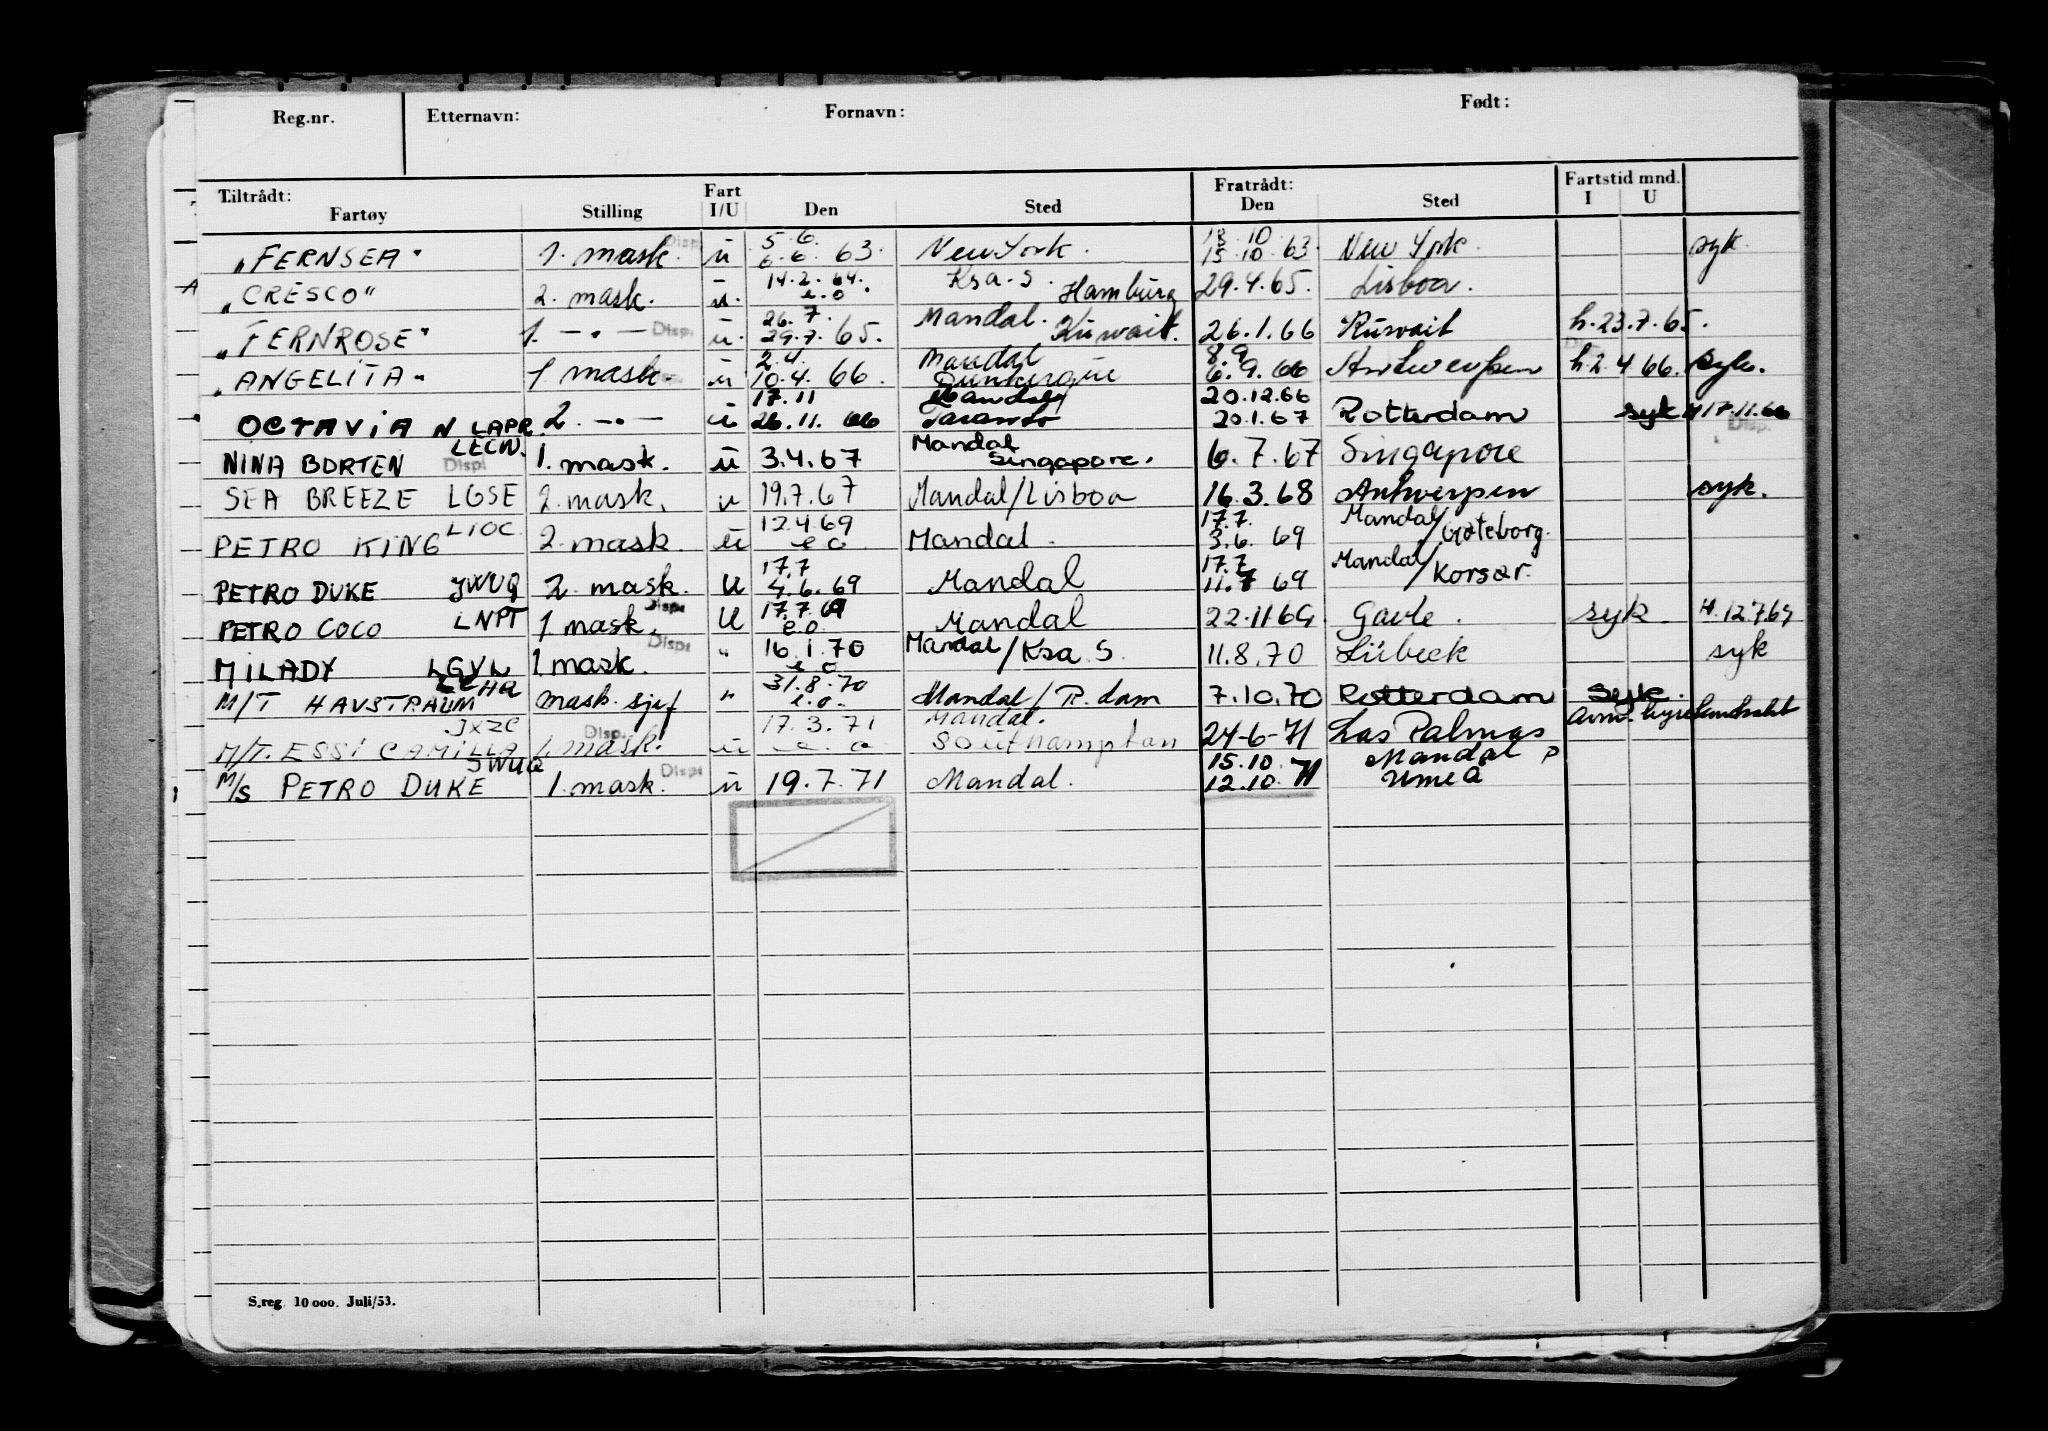 Reg.nr. Etternavn: Fornavn: Født:
Tiltrådt: Fart Fratrådt: Fartstid mnd.
Fartøy Stilling I/U Den Sted Den Sted I U
"FERNSEA" 1. mask. Disp. ü 5.6. 6.6. 63. New York. 13.10 15.10.63. New York. syk.
"CRESCO" 2. mask. ü. 14.2.64. e.o. Ksa. S. Hamburg 29.4.65. Lisboa.
"FERNROSE" 1. — " — Disp. ü. 26.7. 29.7.65. Mandal. Kuwait. 26.1.66 Kuwait h. 23.7.65.
"ANGELITA" 1 mask. ü 2.4. 10.4.66. Mandal Dunkerque 8.9 6.9.66 Antwerpen h. 2.4 66. syk.
OCTAVIA N LAPR. 2. — " — ü 17.11 26.11.66 Mandal Taranto 20.12.66 20.1.67 Rotterdam syk H 17.11.66 Disp.
NINA BORTEN LECN. Disp! 1. mask. ü 3.4.67 Mandal Singapore. 6.7.67 Singapore
SEA BREEZE LGSE 2. mask. u 19.7.67 Mandal/Lisboa 16.3.68 Antwerpen syk.
PETRO KING LIOC 2. mask. ü 12.4.69 e o Mandal. 17.7. 3.6. 69 Mandal/Gøteborg.
PETRO DUKE JWUQ 2. mask. U 17.7 4.6.69 Mandal 17.7 11.7 69 Mandal/Korsør.
PETRO COCO LNPT 1. mask. Disp. U 17.7.69 e.o. Mandal 22.11 69 Gavle. syk. H. 12.7.69
MILADY LGVL 1. mask. Disp! " 16.1.70 e o Mandal/Ksa. S. 11.8.70 Lübeck syk
M/T HAVSTRAUM mask. sjef " 31.8.70 e.o. Mandal/R.dam 7.10.70 Rotterdam syk.
M/T. ESSI CAMILLA JXZC 1. mask. Disp. ü 17.3.71 e. o Mandal. Southampton 24-6-71 Las Palmas
M/S PETRO DUKE JWUQ 1. mask. Disp! ü 19.7.71 Mandal. 15.10. 12.10.71 Mandal P Umeå
S.reg. 10 000. Juli/53.